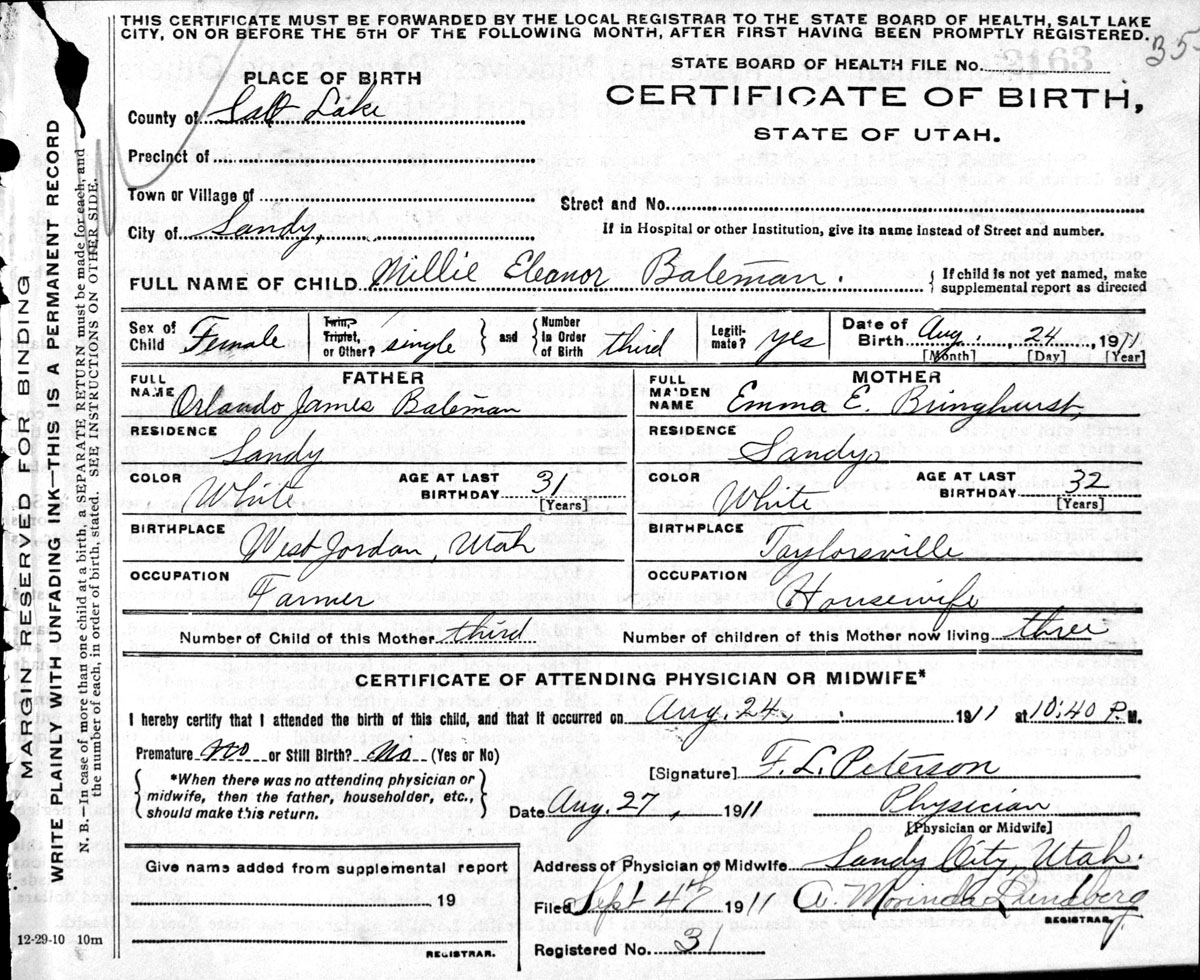 THIS CERTIFICATE MUST BE FORWARDED BY THE LOCAL REGISTRAR TO THE STATE BOARD OF HEALTH, SALT LAKE
CITY, ON OR BEFORE THE 5TH OF THE FOLLOWING MONTH, AFTER FIRST HAVING BEEN PROMPTLY REGISTERED.
35
STATE BOARD OF HEALTH FILE No.
CERTIFICATE OF BIRTH,
STATE OF UTAH.
PLACE OF BIRTH
County of Salt Lake
Precinct of
Town or Village of
City of Sandy,
Street and No.
If in Hospital or other Institution, give its name instead of Street and number.
FULL NAME OF CHILD Millie Eleanor Bateman.
{ If child is not yet named, make
supplemental report as directed
Sex of Child Female
Twin, Triplet, or Other? single } and { Number in Order of Birth third
Legitimate? yes
Date of Birth Aug. 24, 1911
[Month] [Day] [Year]
FATHER
FULL NAME Orlando James Bateman
RESIDENCE Sandy
COLOR White AGE AT LAST BIRTHDAY 31 [Years]
BIRTHPLACE West Jordan, Utah
OCCUPATION Farmer
MOTHER
FULL MAIDEN NAME Emma E. Bringhurst,
RESIDENCE Sandy
COLOR White AGE AT LAST BIRTHDAY 32 [Years]
BIRTHPLACE Taylorsville
OCCUPATION Housewife
Number of Child of this Mother third Number of children of this Mother now living three
CERTIFICATE OF ATTENDING PHYSICIAN OR MIDWIFE*
I hereby certify that I attended the birth of this child, and that it occurred on Aug. 24, 1911 at 10:40 P. M.
Premature no or Still Birth? No (Yes or No)
{ *When there was no attending physician or
midwife, then the father, householder, etc.,
should make this return. }
[Signature] F. L. Peterson
Date Aug. 27, 1911 Physician
[Physician or Midwife]
Give name added from supplemental report
19
REGISTRAR.
Address of Physician or Midwife Sandy City, Utah.
Filed Sept 4th 1911 A. Morinda Lundberg
REGISTRAR.
Registered No. 31
12-29-10 10m
MARGIN RESERVED FOR BINDING
WRITE PLAINLY WITH UNFADING INK—THIS IS A PERMANENT RECORD
N. B.—In case of more than one child at a birth a SEPARATE RETURN must be made for each, and
the number of each, in order of birth, stated. SEE INSTRUCTIONS ON OTHER SIDE.